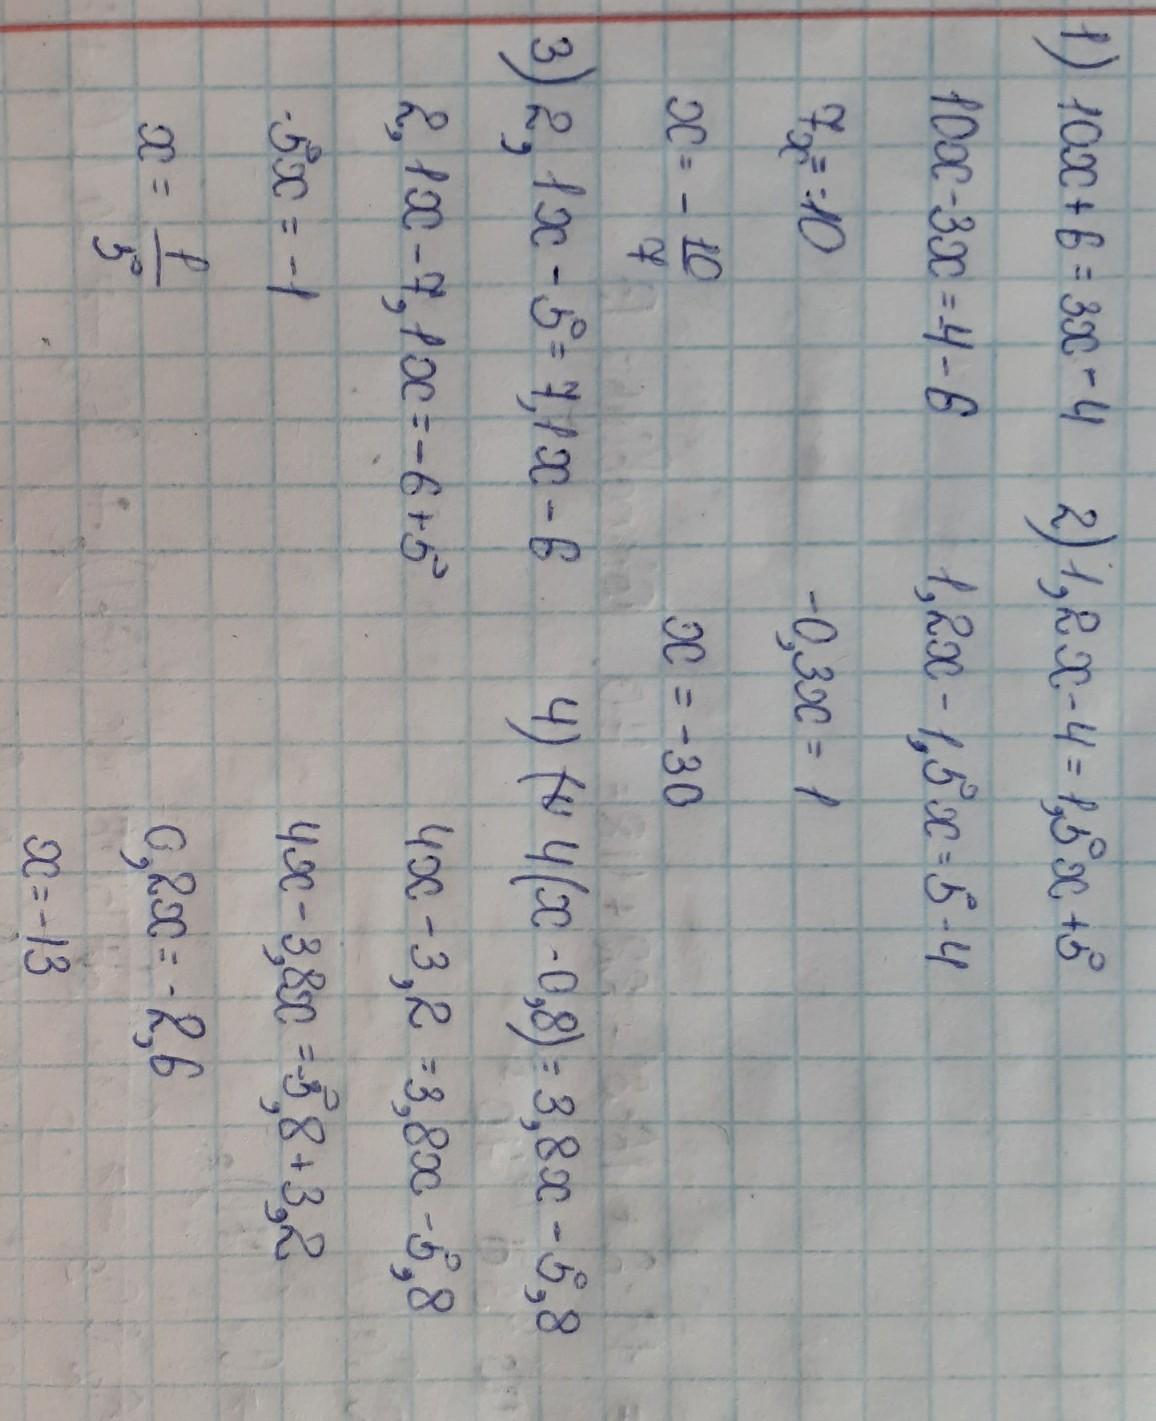 1) 10x+6=3x-4
10x-3x=4-6
7x=-10
x=-10/7
2) 1,2x-4=1,5x+5
1,2x-1,5x=5-4
-0,3x=1
x=-30
3) 2,1x-5=7,1x-6
2,1x-7,1x=-6+5
-5x=-1
x=1/5
4) 4(x-0,8)=3,8x-5,8
4x-3,2=3,8x-5,8
4x-3,8x=-5,8+3,2
0,2x=-2,6
x=-13